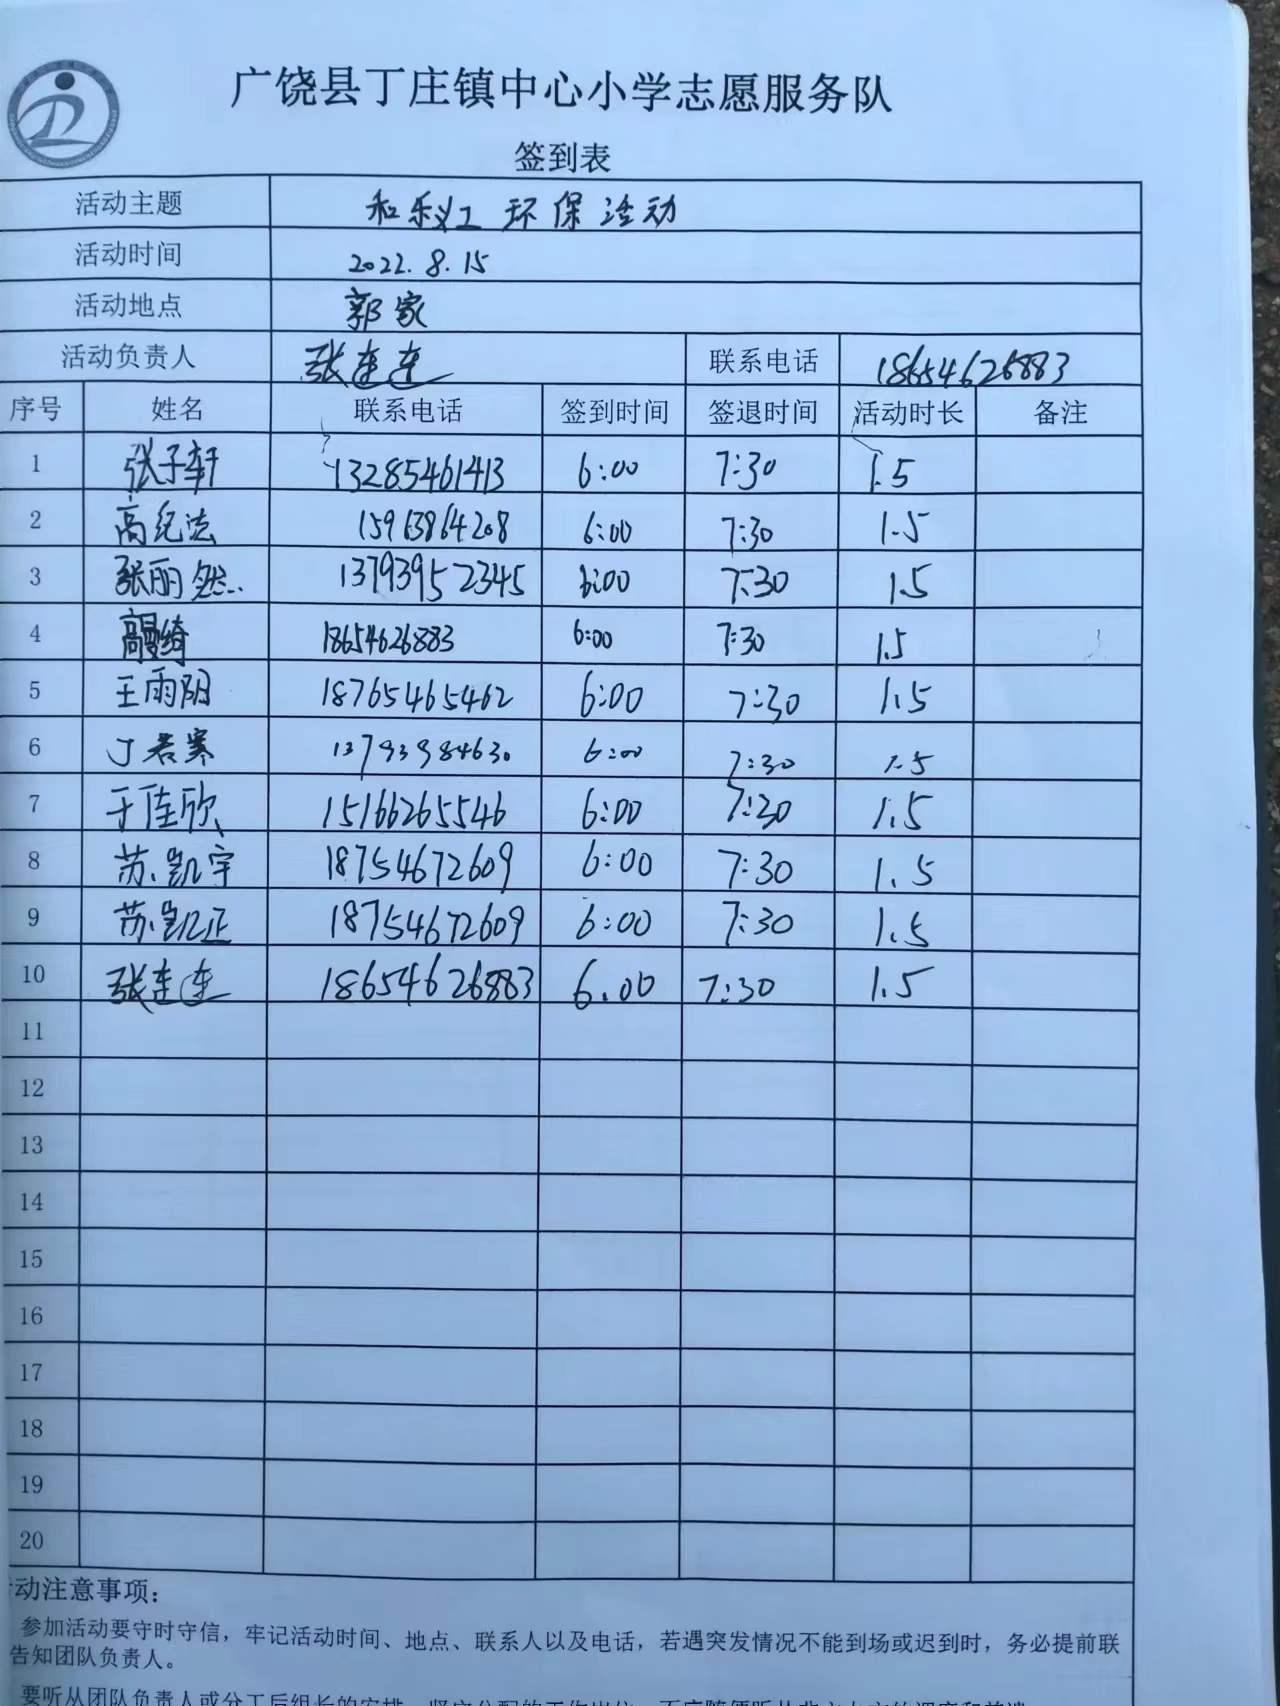 广饶县丁庄镇中心小学志愿服务队
签到表
活动主题 和乐义工环保活动
活动时间 2022.8.15
活动地点 郭家
活动负责人 张连连 联系电话 18654626883
序号 姓名 联系电话 签到时间 签退时间 活动时长 备注
1 张子轩 13285461413 6:00 7:30 1.5
2 高纪法 15963864208 6:00 7:30 1.5
3 张丽然 13793952345 6:00 7:30 1.5
4 高曼绮 18654626883 6:00 7:30 1.5
5 王雨阳 18765465462 6:00 7:30 1.5
6 丁若寒 13793984630 6:00 7:30 1.5
7 于佳欣 15166265546 6:00 7:30 1.5
8 苏凯宇 18754672609 6:00 7:30 1.5
9 苏凯正 18754672609 6:00 7:30 1.5
10 张连连 18654626883 6.00 7:30 1.5
11
12
13
14
15
16
17
18
19
20
动注意事项：
参加活动要守时守信，牢记活动时间、地点、联系人以及电话，若遇突发情况不能到场或迟到时，务必提前联
告知团队负责人。
要听从团队负责人或分工后组长的安排